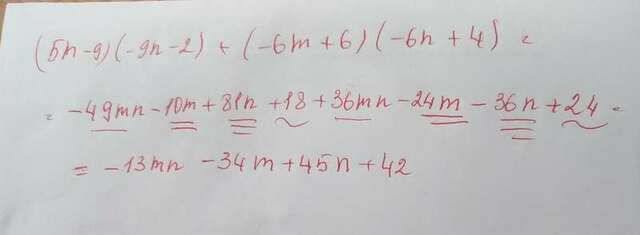 (5n-9)(-9n-2) + (-6m+6)(-6n+4) =
= -49mn -10m +81n +18 +36mn -24m -36n +24 =
= -13mn -34m +45n +42